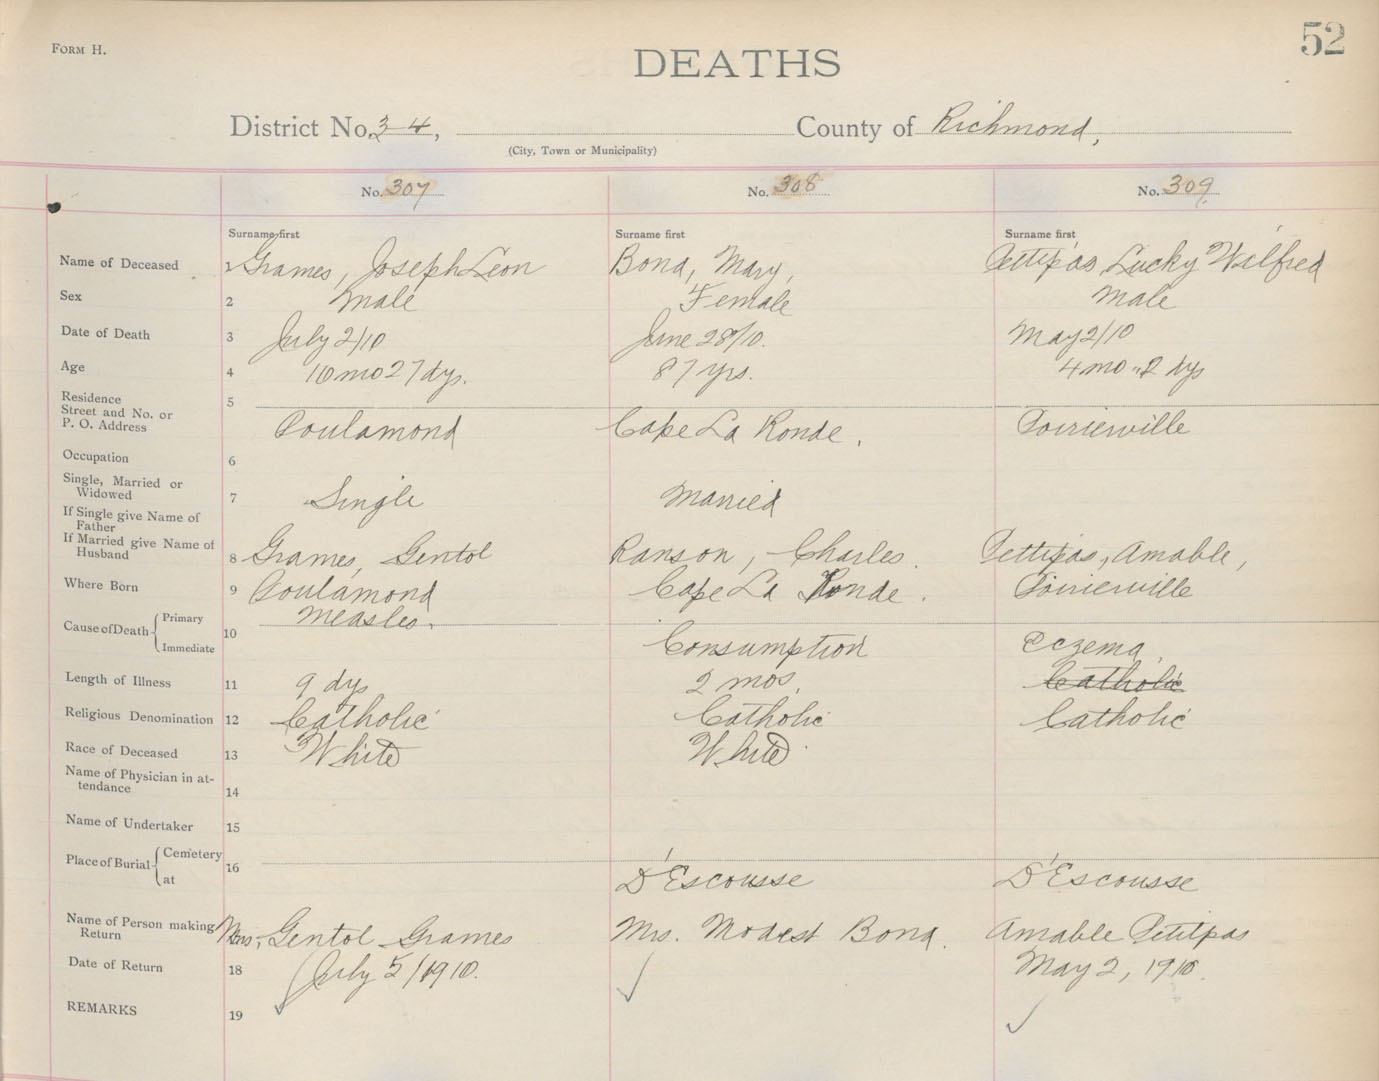 FORM H.
52
DEATHS
District No. 34, County of Richmond,
(City, Town or Municipality)
No. 307 No. 308 No. 309
Surname first Surname first Surname first
Name of Deceased 1 Grames, Joseph Leon Bond, Mary, Pettipas Lucky Wilfred
Sex 2 Male Female Male
Date of Death 3 July 2/10 June 28/10. May 2/10
Age 4 10 mo 27 dys. 87 yrs. 4 mo 2 dys
Residence
Street and No. or
P. O. Address 5 Poulamond Cape La Ronde, Poirierville
Occupation 6
Single, Married or
Widowed 7 Single Married
If Single give Name of
Father
If Married give Name of
Husband 8 Grames, Gentol Ranson, Charles. Pettipas, Amable,
Where Born 9 Poulamond Cape La Ronde. Poirierville
Cause of Death Primary Measles.
10
Immediate Consumption Eczema
Length of Illness 11 9 dys 2 mos. Catholic
Religious Denomination 12 Catholic Catholic Catholic
Race of Deceased 13 White White
Name of Physician in at-
tendance 14
Name of Undertaker 15
Place of Burial Cemetery
16
at D'Escousse D'Escousse
Name of Person making
Return Mrs. Gentol Grames Mrs. Modest Bond. Amable Petitpas
Date of Return 18 July 5/1910. May 2, 1910.
REMARKS 19